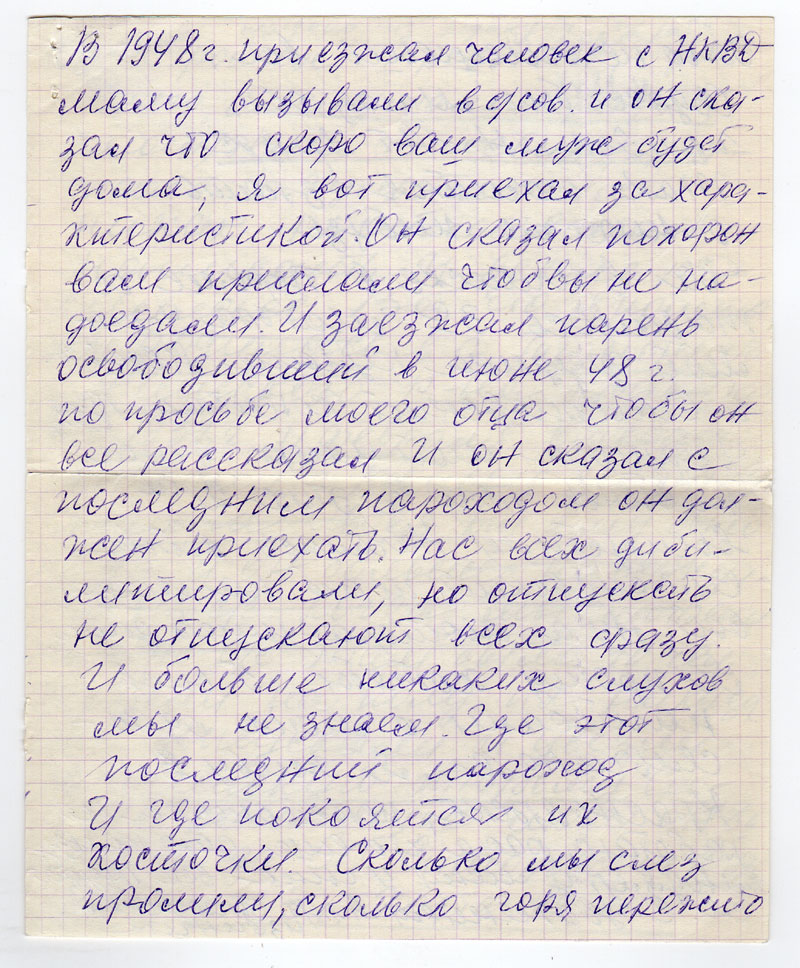 В 1948 г. приезжал человек с НКВД
маму вызывали в с/сов. и он ска-
зал что скоро ваш муж будет
дома, я вот приехал за хара-
ктеристикой. Он сказал похорон
вам прислали чтобвы не на-
доедали. И заезжал парень
освободивший в июне 48 г.
по просьбе моего отца чтобы он
все рассказал И он сказал с
последним пароходом он дол-
жен приехать. Нас всех диби-
литировали, но отпускать
не отпускают всех сразу.
И больше никаких слухов
мы не знаем. Где этот
последний пароход
И где покоятся их
косточки. Сколько мы слез
пролили, сколько горя пережито